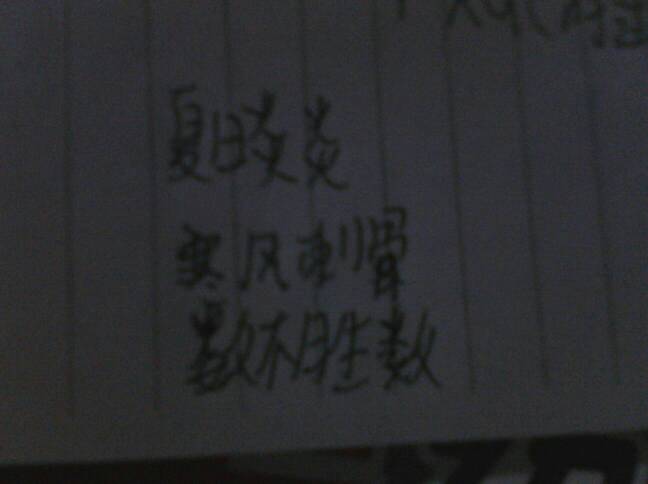 夏日炎炎
寒风刺骨
数不胜数